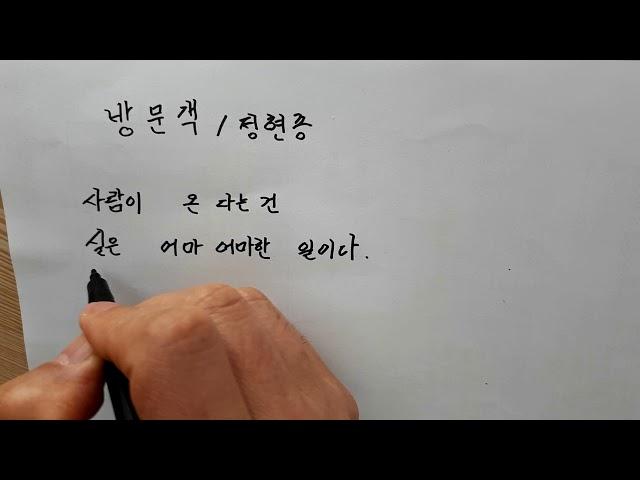 방문객 / 정현종
사람이 온 다는 건
실은 어마 어마한 일이다.